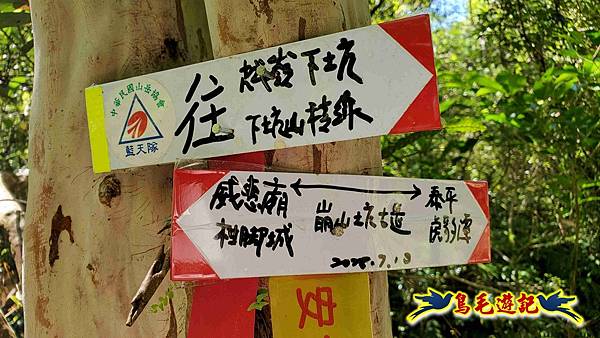 中華民國山岳協會
藍天隊
往
越嶺下坑
下坑山稜線
慈悲廟
崩山坑古道
泰平
虎豹潭
柑腳城
2025.7.18
鳥毛遊記